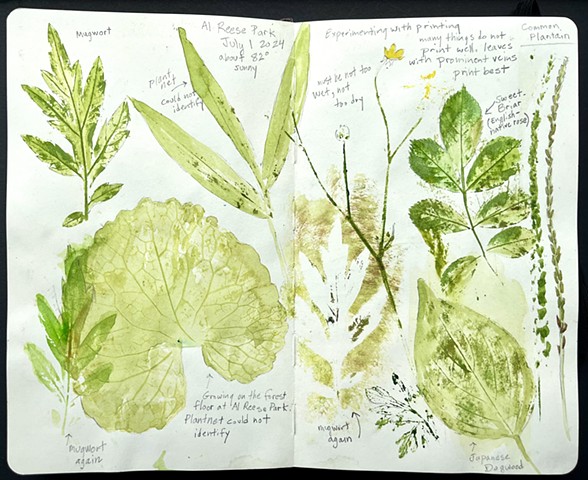 Mugwort
Al Reese Park
July 1 2024
about 82°
sunny
plant
net
could not
identify
Experimenting with printing
many things do not
print well. leaves
with prominent veins
print best
must be not too
wet, not
too dry
Common
Plantain
Sweet-
Briar
(English-
native rose)
Growing on the forest
floor at Al Reese Park.
Plantnet could not
identify
mugwort
again
mugwort
again
Japanese
Dogwood